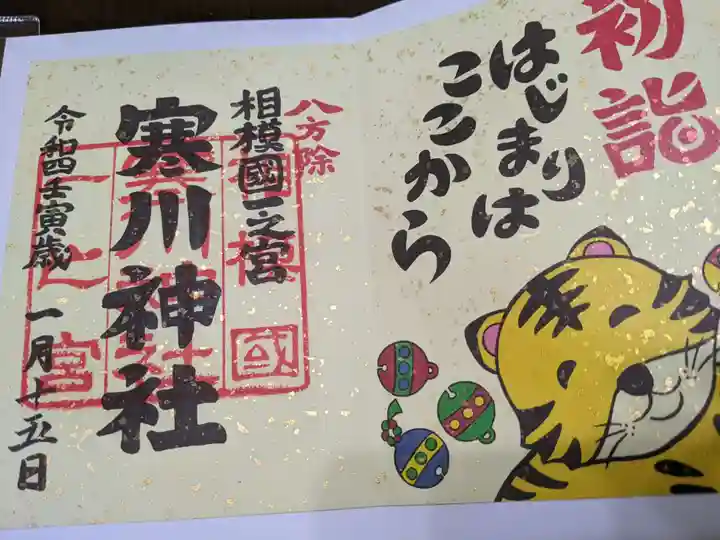 初詣
はじまりは
ここから
八方除
相模國一之宮
寒川神社
令和四壬寅歳 一月十五日